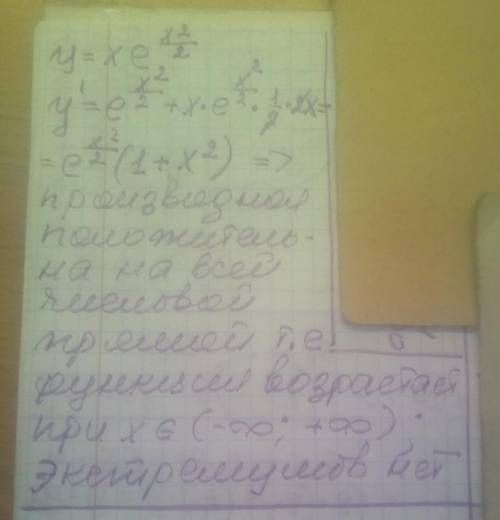 y = x e^{x²/2}
y' = e^{x²/2} + x · e^{x²/2} · 1/2 · 2x =
= e^{x²/2} (1 + x²) =>
производная
положитель-
на на всей
числовой
прямой т.е.
функция возрастает
при x ∈ (-∞; +∞);
экстремумов нет